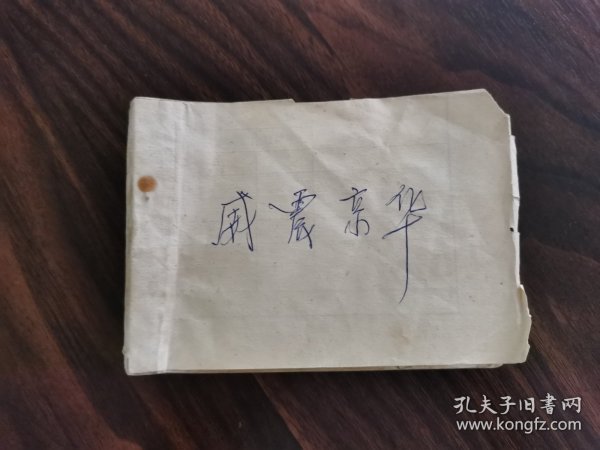 威震京华
孔夫子旧書网
www.kongfz.com